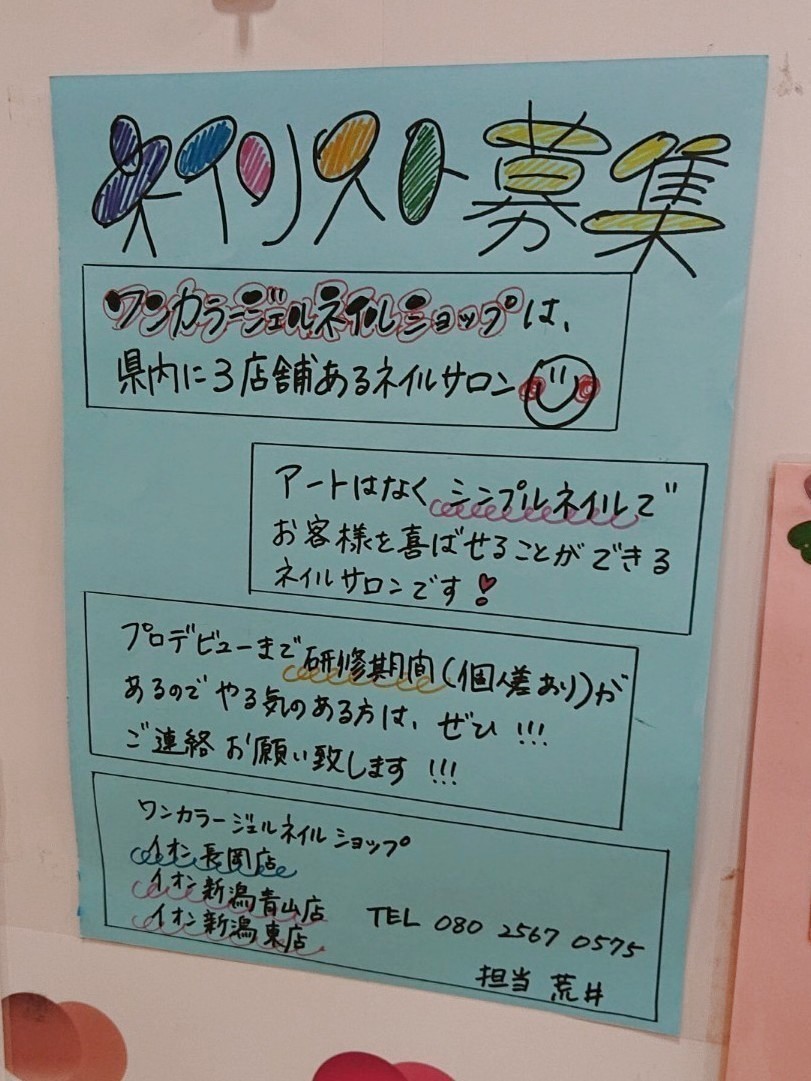 ネイリスト募集
ワンカラージェルネイルショップは、
県内に3店舗あるネイルサロン
アートはなくシンプルネイルで
お客様を喜ばせることができる
ネイルサロンです!
プロデビューまで研修期間(個人差あり)が
あるのでやる気のある方は、ぜひ!!!
ご連絡お願い致します!!!
ワンカラージェルネイルショップ
イオン長岡店
イオン新潟青山店
イオン新潟東店
TEL 080 2567 0575
担当 荒井